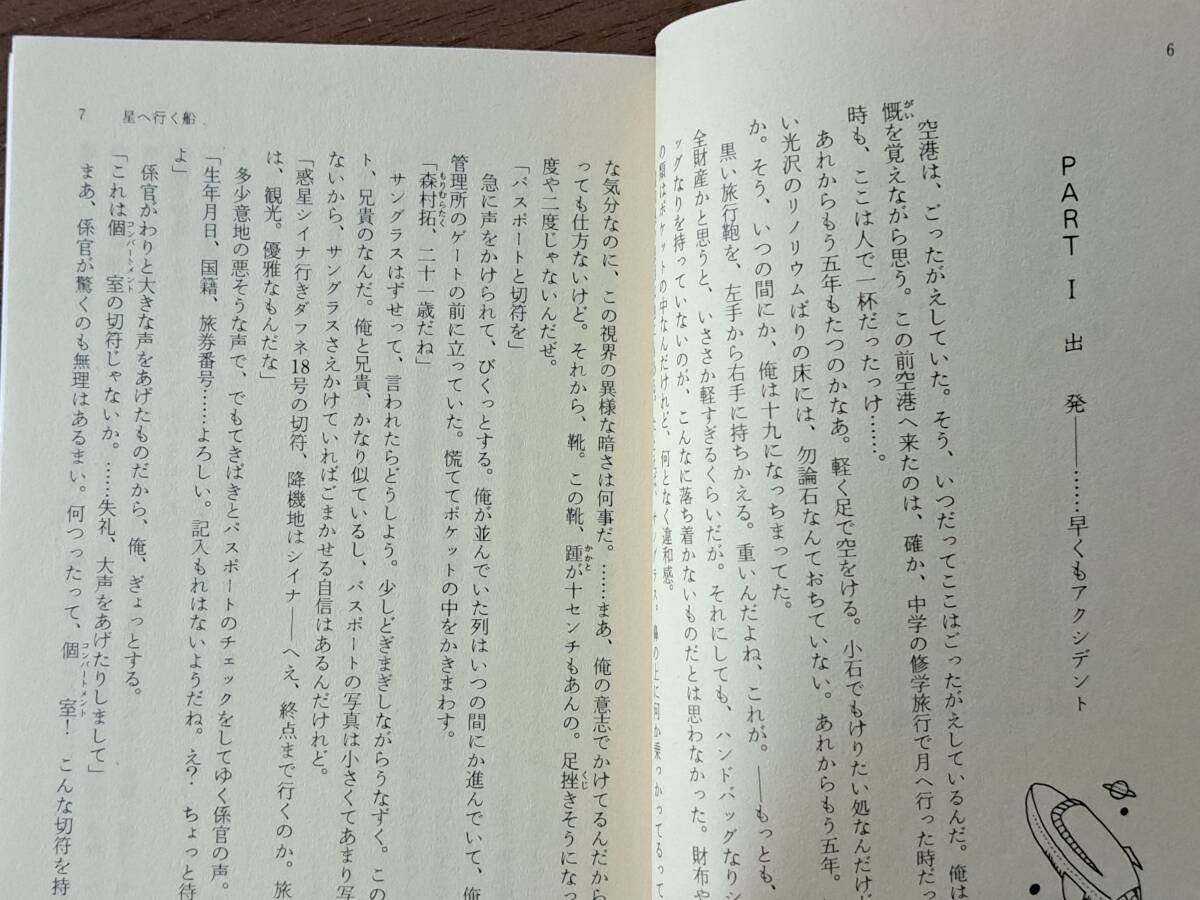 6
PART I 出発――……早くもアクシデント
空港は、ごったがえしていた。そう、いつだってここはごったがえしているんだ。俺は
慨を覚えながら思う。この前空港へ来たのは、確か、中学の修学旅行で月へ行った時だっ
時も、ここは人で一杯だったっけ……。
あれからもう五年もたつのかなあ。軽く足で空をける。小石でもけりたい処なんだけど
い光沢のリノリウムばりの床には、勿論石なんておちていない。あれからもう五年。
か。そう、いつの間にか、俺は十九になっちまってた。
黒い旅行鞄を、左手から右手に持ちかえる。重いんだよね、これが。――もっとも、
全財産かと思うと、いささか軽すぎるくらいだが。それにしても、ハンドバッグなりシ
ッグなりを持っていないのが、こんなに落ち着かないものだとは思わなかった。財布や
の類はポケットの中なんだけれど、何となく違和感。
サングラス。鼻の上に何か乗っかってるって
7 星へ行く船
な気分なのに、この視界の異様な暗さは何事だ。……まあ、俺の意志でかけてるんだから
っても仕方ないけど。それから、靴。この靴、踵が十センチもあんの。足挫きそうになっ
度や二度じゃないんだぜ。
「パスポートと切符を」
急に声をかけられて、びくっとする。俺が並んでいた列はいつの間にか進んでいて、俺
管理所のゲートの前に立っていた。慌ててポケットの中をかきまわす。
「森村拓、二十一歳だね」
サングラスはずせって、言われたらどうしよう。少しどぎまぎしながらうなずく。この
ト、兄貴のなんだ。俺と兄貴、かなり似ているし、パスポートの写真は小さくてあまり写
ないから、サングラスさえかけていればごまかせる自信はあるんだけれど。
「惑星シイナ行きダフネ18号の切符、降機地はシイナ――へえ、終点まで行くのか。旅
は、観光。優雅なもんだな」
多少意地の悪そうな声で、でもてきぱきとパスポートのチェックをしてゆく係官の声。
「生年月日、国籍、旅券番号……よろしい。記入もれはないようだね。え？ ちょっと待
よ」
係官がわりと大きな声をあげたものだから、俺、ぎょっとする。
「これは個室の切符じゃないか。……失礼、大声をあげたりしまして」
まあ、係官が驚くのも無理はあるまい。何つったって、個室！ こんな切符を持